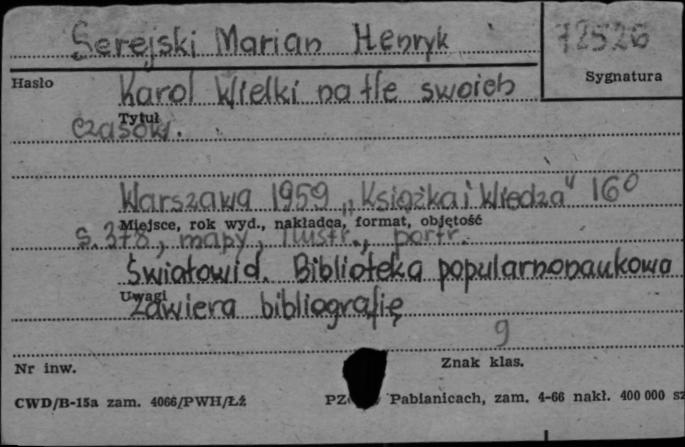 Serejski Marian Henryk
72526
Hasło
Sygnatura
Karol Wielki na tle swoich
Tytuł
czasów.
Warszawa 1959 „Książka i Wiedza" 16°
Miejsce, rok wyd., nakładca, format, objętość
s. 378, mapy, ilustr., portr.
Światowid. Biblioteka popularnonaukowa
Uwagi
zawiera bibliografię
9
Nr inw.
Znak klas.
CWD/B-15a zam. 4066/PWH/Łź
PZ Pabianicach, zam. 4-66 nakł. 400 000 sz